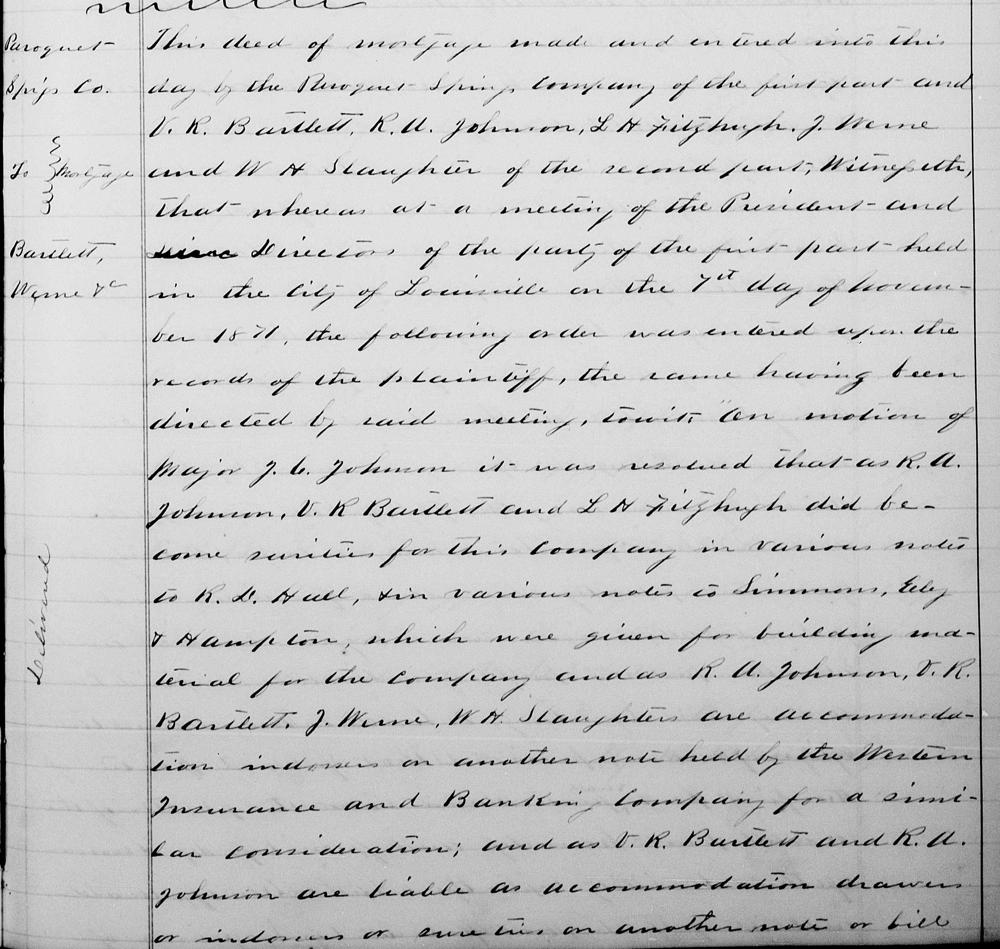 Paroquet
Sp'gs Co.
To Mortgage
Bartlett,
Werne &c
Delivered
This deed of mortgage made and entered into this
day by the Paroquet Springs Company of the first part and
V. R. Bartlett, R. A. Johnson, L H Fitzhugh, J. Werne
and W H Slaughter of the second part, Witnesseth,
that whereas at a meeting of the President and
Directors of the party of the first part held
in the City of Louisville on the 7st day of Novem-
ber 1871, the following order was entered upon the
records of the plaintiff, the same having been
directed by said meeting, towit: "On motion of
Major J. C. Johnson it was resolved that as R. A.
Johnson, V. R Bartlett and L H Fitzhugh did be-
come surities for this Company in various notes
to R. D. Hull, & in various notes to Simmons, Eley
& Hampton, which were given for building ma-
terial for the Company and as R. A. Johnson, V. R.
Bartlett, J. Werne, W H. Slaughters are accommoda-
tion indorsers on another note held by the Western
Insurance and Banking Company for a simi-
lar consideration; and as V. R. Bartlett and R. A.
Johnson are liable as accommodation drawers
or indorsers or sureties on another note or bill